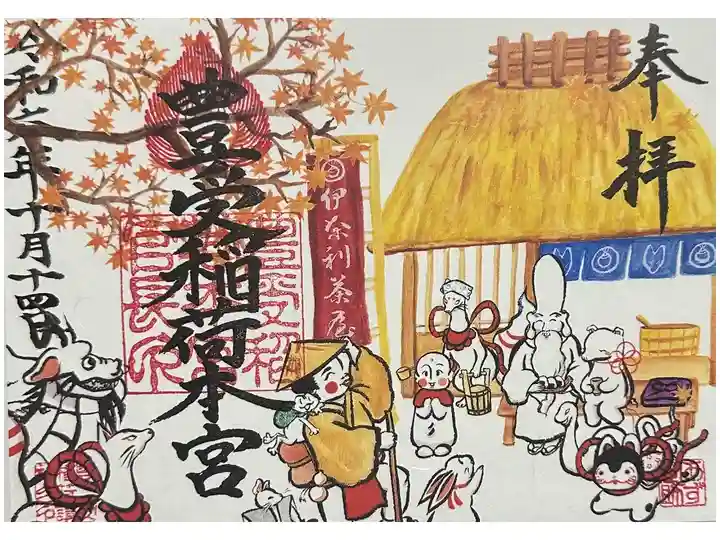 奉拝
豊受稲荷本宮
伊奈利茶屋
令和六年十月十四日